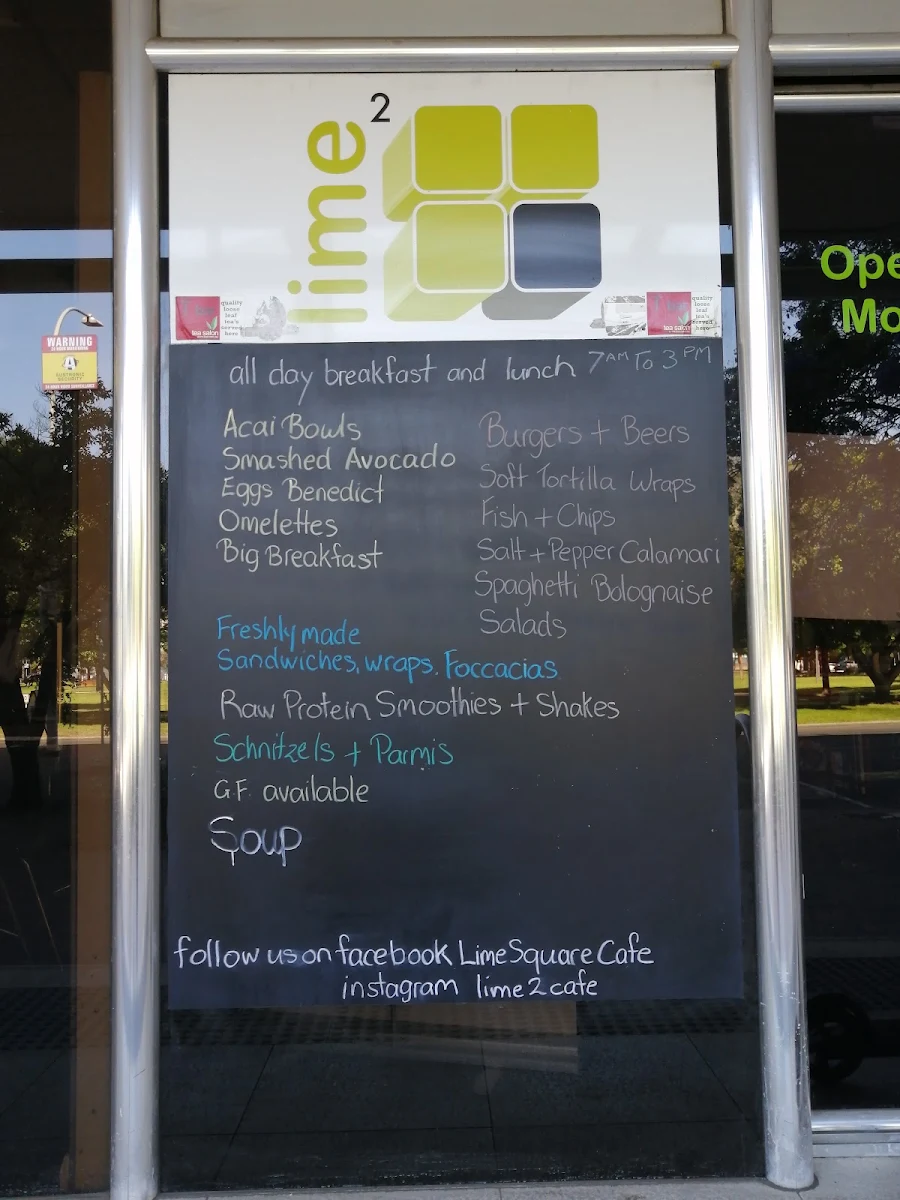 lime 2
quality
loose
leaf
tea's
served
here
tea salon
tea
quality
loose
leaf
tea's
served
here
tea salon
WARNING
Ope
Mo
all day breakfast and lunch 7AM To 3 PM
Acai Bowls
Smashed Avocado
Eggs Benedict
Omelettes
Big Breakfast
Burgers + Beers
Soft Tortilla Wraps
Fish + Chips
Salt + Pepper Calamari
Spaghetti Bolognaise
Salads
Freshly made
Sandwiches, wraps. Foccacias
Raw Protein Smoothies + Shakes
Schnitzels + Parmis
G.F. available
Soup
follow us on facebook Lime Square Cafe
instagram lime2cafe